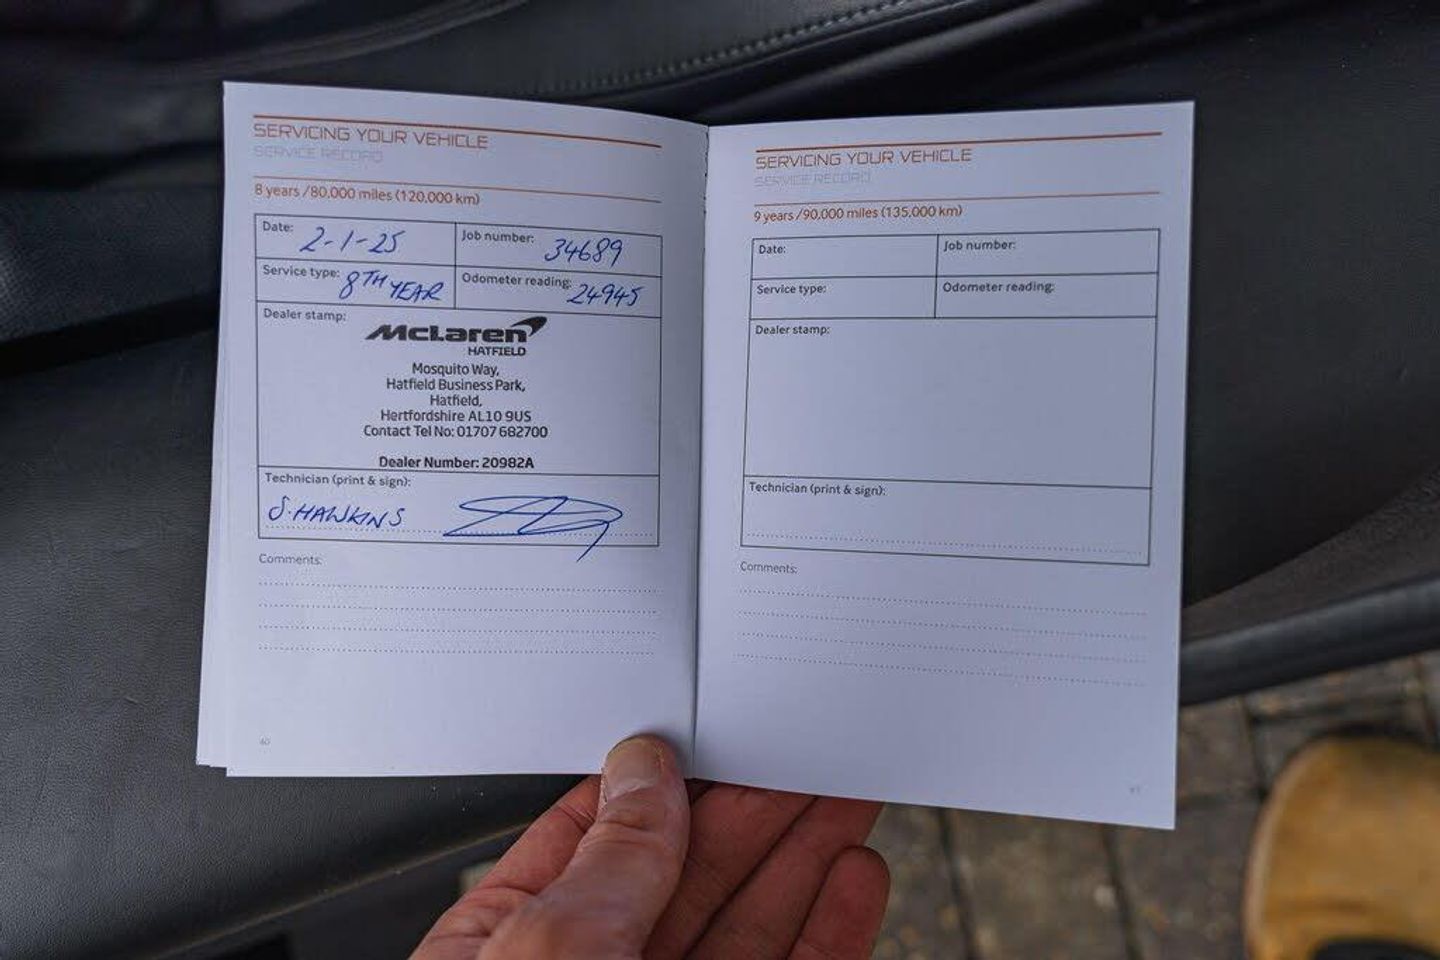 SERVICING YOUR VEHICLE
SERVICE RECORD
8 years /80,000 miles (120,000 km)
Date: 2-1-25
Job number: 34689
Service type: 8TH YEAR
Odometer reading: 24945
Dealer stamp:
McLaren
HATFIELD
Mosquito Way,
Hatfield Business Park,
Hatfield,
Hertfordshire AL10 9US
Contact Tel No: 01707 682700
Dealer Number: 20982A
Technician (print & sign):
S. HAWKINS
Comments:
60
SERVICING YOUR VEHICLE
SERVICE RECORD
9 years /90,000 miles (135,000 km)
Date:
Job number:
Service type:
Odometer reading:
Dealer stamp:
Technician (print & sign):
Comments: